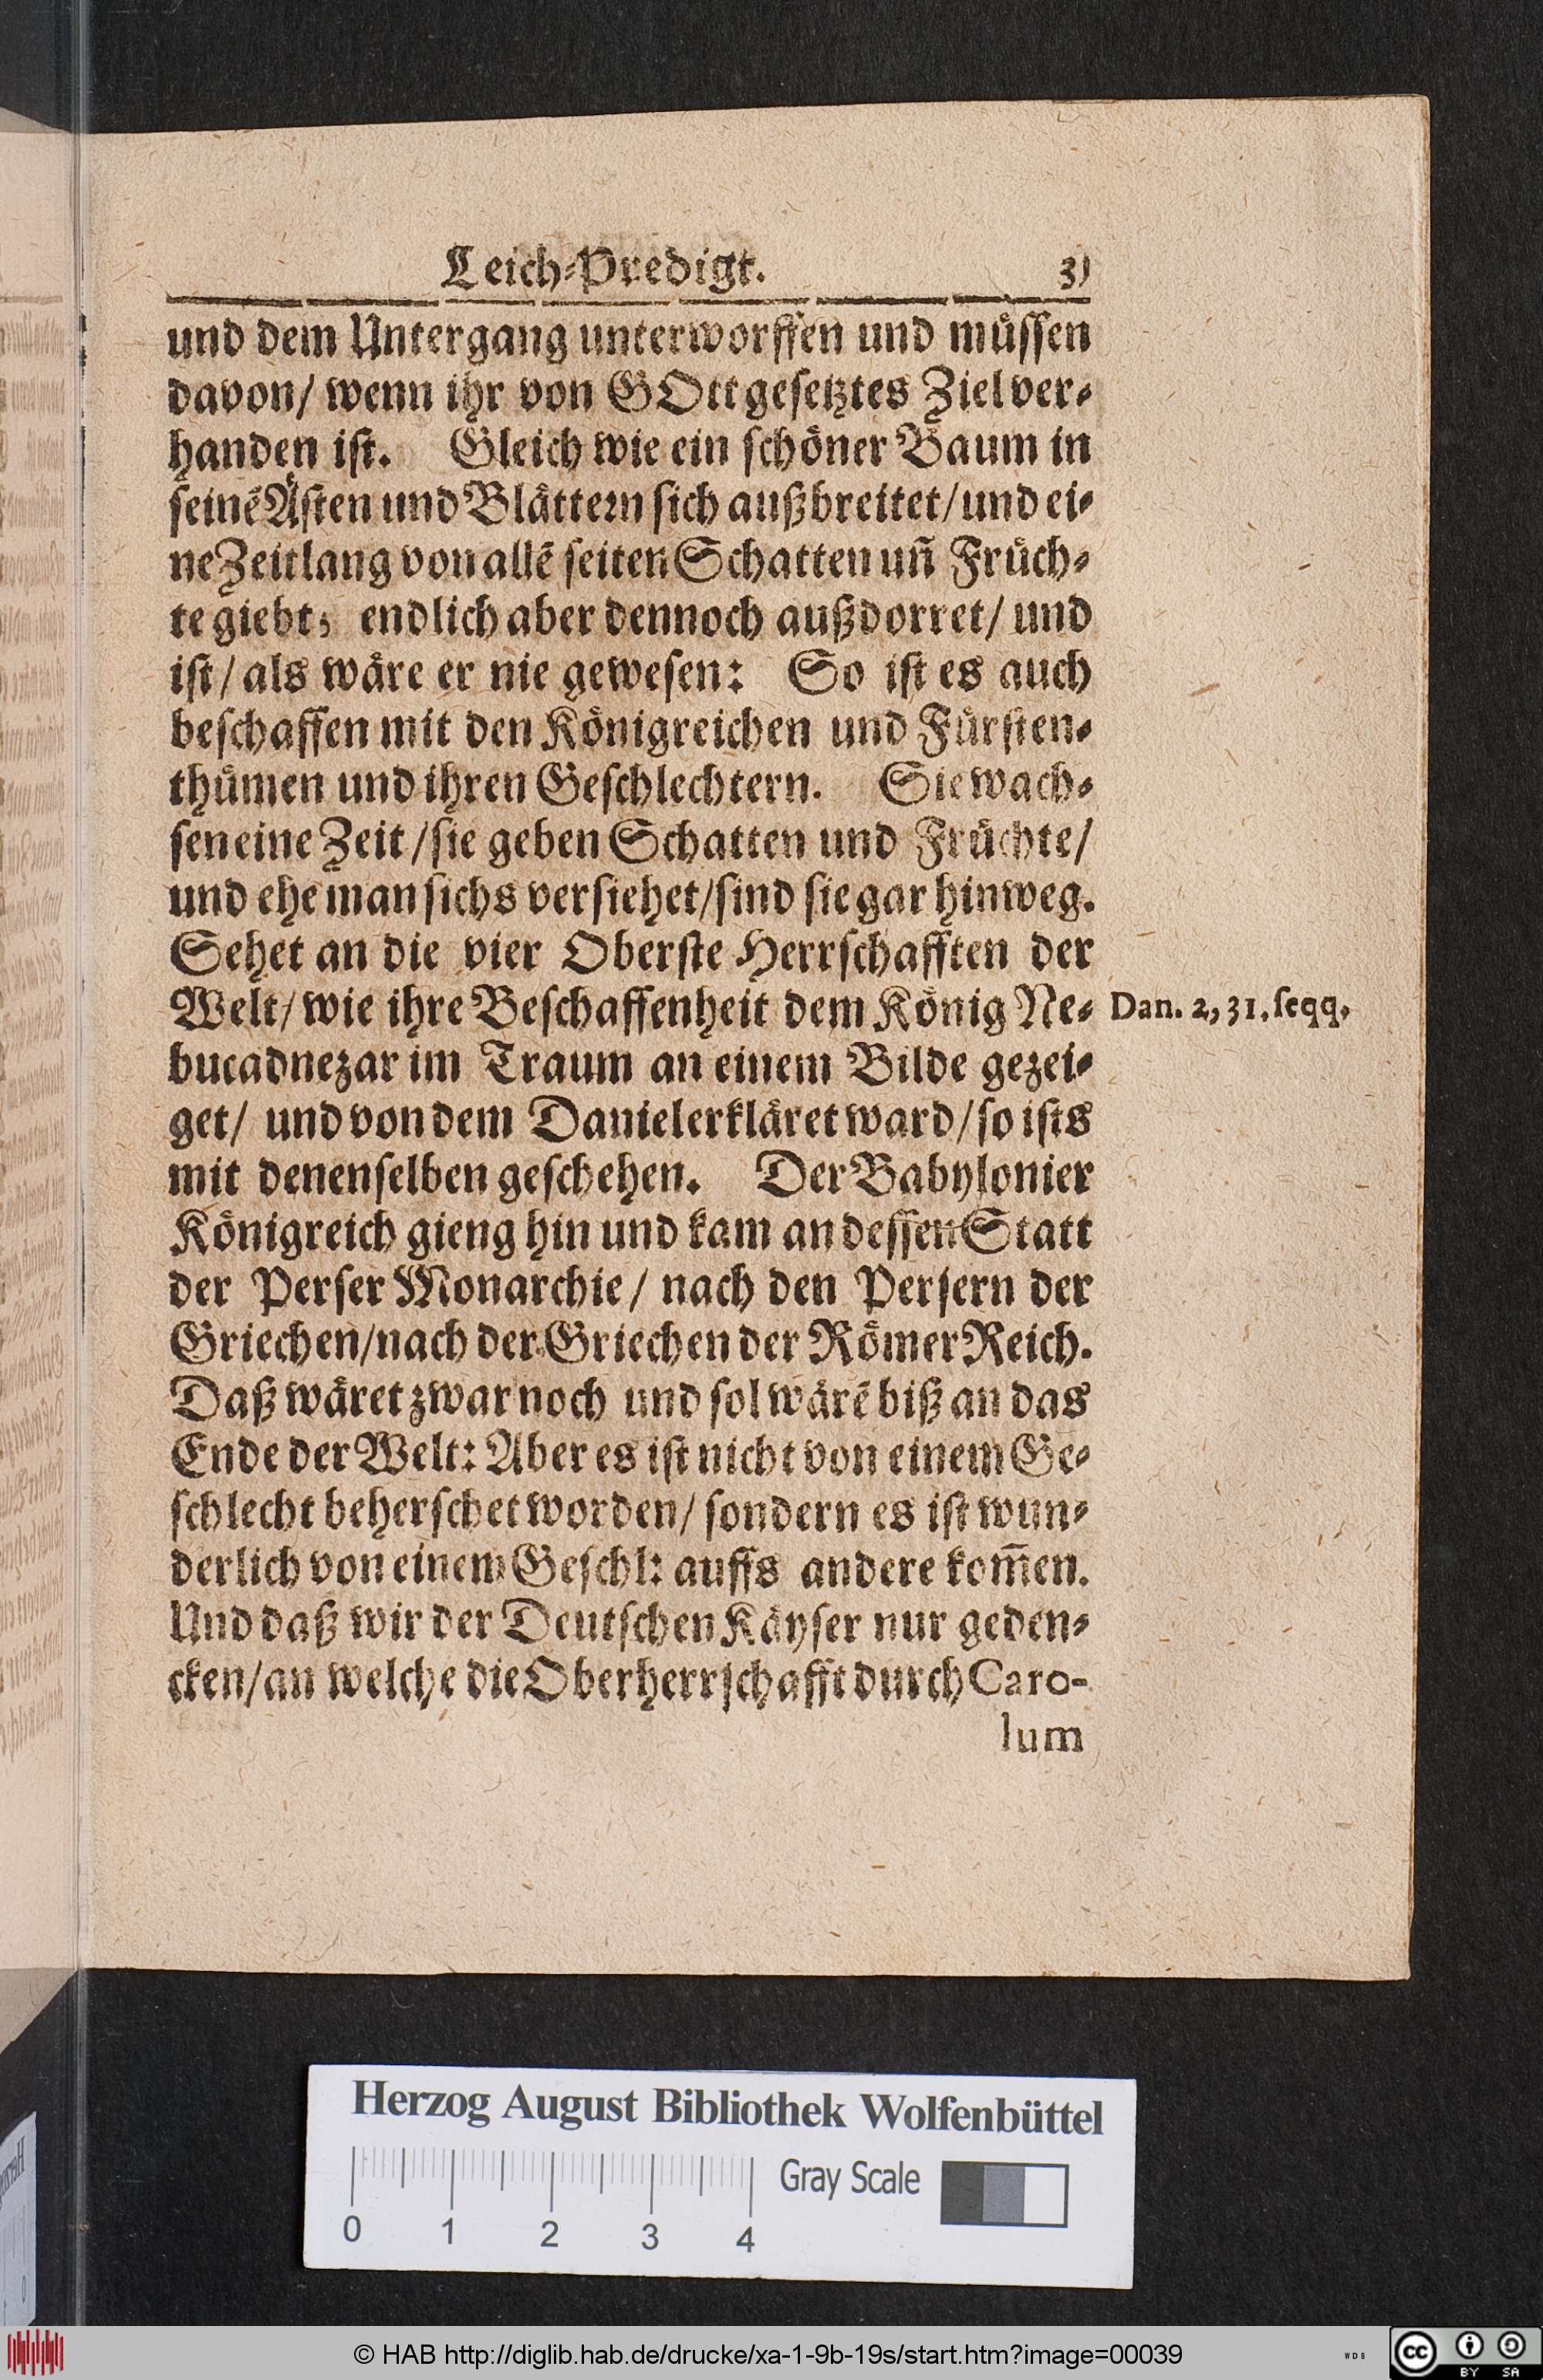 Leich-Predigt. 31
und dem Untergang unterworffen und müssen
davon/ wenn ihr von GOtt gesetztes Ziel ver-
handen ist. Gleich wie ein schöner Baum in
seinē Ästen und Blättern sich außbreitet/ und ei-
ne Zeitlang von allē seiten Schatten uñ Früch-
te giebt; endlich aber dennoch außdorret/ und
ist/ als wäre er nie gewesen: So ist es auch
beschaffen mit den Königreichen und Fürsten-
thümen und ihren Geschlechtern. Sie wach-
sen eine Zeit/ sie geben Schatten und Früchte/
und ehe man sichs versiehet/ sind sie gar hinweg.
Sehet an die vier Oberste Herrschafften der
Welt/ wie ihre Beschaffenheit dem König Ne-
Dan. 2, 31. seqq.
bucadnezar im Traum an einem Bilde gezei-
get/ und von dem Daniel erkläret ward/ so ists
mit denenselben geschehen. Der Babylonier
Königreich gieng hin und kam an dessen Statt
der Perser Monarchie/ nach den Persern der
Griechen/ nach der Griechen der Römer Reich.
Daß wäret zwar noch und sol wärē biß an das
Ende der Welt: Aber es ist nicht von einem Ge-
schlecht beherschet worden/ sondern es ist wun-
derlich von einem Geschl: auffs andere kom̄en.
Und daß wir der Deutschen Käyser nur geden-
cken/ an welche die Oberherrschafft durch Caro-
lum
Herzog August Bibliothek Wolfenbüttel
Gray Scale
0 1 2 3 4
© HAB http://diglib.hab.de/drucke/xa-1-9b-19s/start.htm?image=00039
WDB
cc BY SA